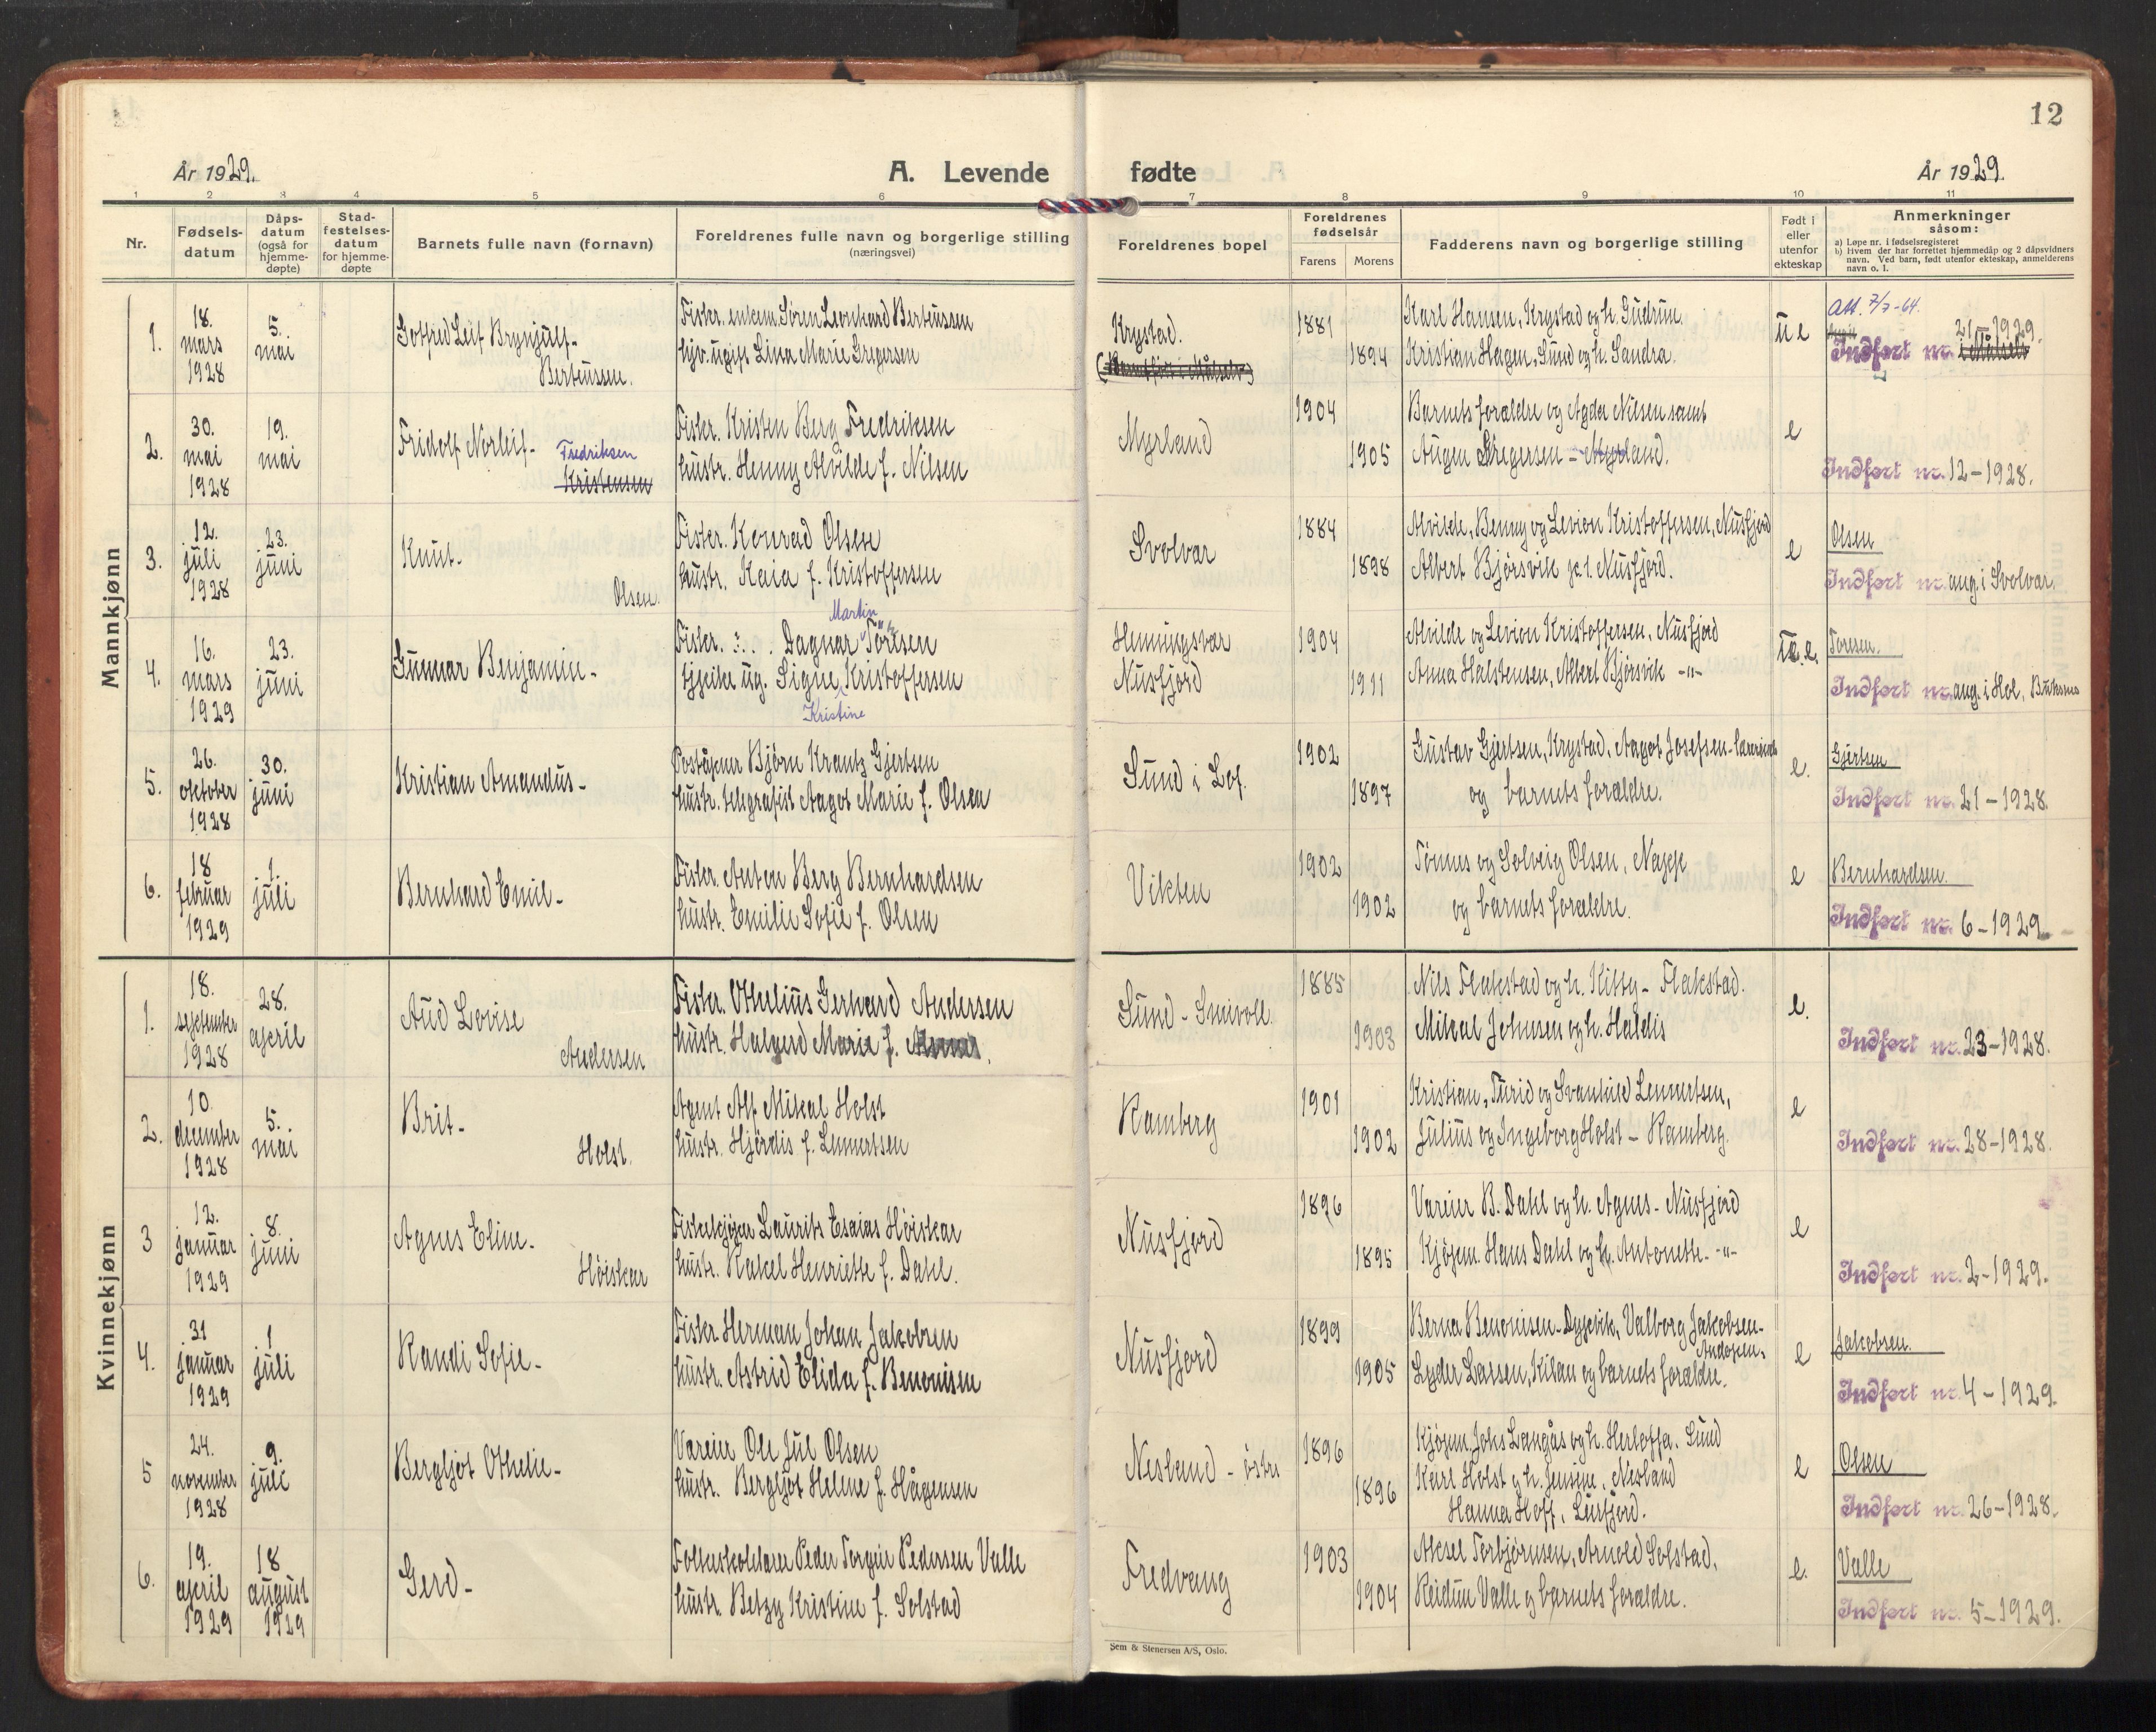 12
År 1929.
A. Levende fødte
År 1929.
1 2 3 4 5 6 7 8 9 10 11
Nr.
Fødsels-
datum
Dåps-
datum
(også for
hjemme-
døpte)
Stad-
festelses-
datum
for hjemme-
døpte
Barnets fulle navn (fornavn)
Foreldrenes fulle navn og borgerlige stilling
(næringsvei)
Foreldrenes bopel
Foreldrenes
fødselsår
Farens Morens
Fadderens navn og borgerlige stilling
Født i
eller
utenfor
ekteskap
Anmerkninger
såsom:
a) Løpe nr. i fødselsregisteret
b) Hvem der har forrettet hjemmedåp og 2 dåpsvidners
navn. Ved barn, født utenfor ekteskap, anmelderens
navn o. l.
Mannkjønn
1.
18.
mars
1928
5.
mai
Gotfred Leif Brynjulf-
Bertüssen.
Fisker. enkem. Sören Leonhard Bertüssen
hjv. ügift Lina Marie Gregersen
Krystad.
1881
1894
Karl Hansen, Krystad og h. Güdrün
Kristian Hagen, Sünd og h. Sandra.
ü e
Att. 7/7-64.
Indført nr. 21-1929.
2.
30.
mai
1928
19.
mai
Fridolf Norleif-
Fredriksen
Kristensen
Fisker. Kristen Berg Fredriksen
hüstr. Henny Alvilde f. Nilsen
Myrland
1904
1905
Barnets forældre og Agda Nilsen samt
Augen Gregersen - Myrland.
e
Indført nr. 12-1928.
3.
12.
jüli
1928
23.
jüni
Knüt-
Olsen.
Fisker. Konrad Olsen
hüstr. Kaia f. Kristoffersen
Svolvær
1884
1898
Alvilde, Benny og Levion Kristoffersen, Nüsfjord
Albert Bjørsvik p.t. Nüsfjord.
e
Olsen
Indført nr. ang. i Svolvær.
4.
16.
mars
1929
23.
jüni
Günnar Benjamin-
Martin
Fisker. Dagnar Toresen
tjpike üg. Signe Kristoffersen
Kristine
Henningsvær
Nüsfjord
1904
1911
Alvilde og Levion Kristoffersen, Nüsfjord
Anna Halstensen, Albert Bjørsvik -"-
ü. e.
Toresen.
Indført nr. ang. i Hol, Büksnes
5.
26.
oktober
1928
30.
jüni
Kristian Amandüs-
Poståpner Bjørn Krantz Gjertsen
hüstr. telegrafist Aagot Marie f. Olsen
Sünd i Lof.
1902
1897
Güstav Gjertsen, Krystad, Aagot Josefsen-lærerinde
og barnets forældre.
e.
Gjertsen
Indført nr. 21-1928.
6.
18
februar
1929
1.
jüli
Bernhard Emil-
Fisker. Anton Berg Bernhardsen
hüstr. Emilie Sofie f. Olsen
Vikten
1902
1902
Tönnes og Solveig Olsen, Napp
og barnets forældre.
e
Bernhardsen.
Indført nr. 6-1929.
Kvinnekjønn
1.
18.
september
1928
28.
april
Aüd Lovise
Andersen
Fisker. Othelius Gerhard Andersen
hüstr. Halgerd Marie f.
Sünd - Smivoll.
1885
1903
Nils Flakstad og h. Kitty- Flakstad.
Mikal Johnsen og h. Haldis
e.
Indført nr. 23-1928.
2.
10.
december
1928
5.
mai
Brit-
Holst.
Agent Alf Mikal Holst
hüstr. Hjördis f. Lennertsen
Ramberg
1901
1902
Kristian, Türid og Svanhild Lennertsen,
Jülius og Ingeborg Holst - Ramberg.
e
Indført nr. 28-1928.
3
12.
januar
1929
8.
jüni
Agnes Eline-
Höiskar
Fiskekjöper Laurits Esaias Höiskar
hüstr. Rakel Henriette f. Dahl.
Nüsfjord
1896
1895
Væreier B. Dahl og h. Agnes- Nüsfjord
Kjöpm. Hans Dahl og h. Antonette- -"-
e
Indført nr. 2-1929.
4.
31
januar
1929
1
jüli
Randi Sofie-
Fisker Herman Johan Jakobsen
hüstr. Astrid Elida f. Benonisen
Nüsfjord
1899
1905
Berna Benonisen-Dypvik, Valborg Jakobsen-
Andopen,
Lyder Larsen, Kilan og barnets forældre.
e
Jakobsen.
Indført nr. 4-1929.
5
24.
november
1928
9.
jüli
Bergljot Othelie-
Væreier Ole Jül Olsen
hüstr. Bergljot Helene f. Hågensen
Nesland - östre
1896
1896
Kjöpm. Johs Langås og h. Herloffa. Sünd
Karl Holst og h. Jensine. Nesland
Hanna Hoff.
e
Olsen
Indført nr. 26-1928.
6.
19.
april
1929
18
august
1929
Gerd-
Folkeskolelærer Peder Torgeir Pedersen Valle
hüstr. Betzy Kristine f. Solstad
Fredvang
1903
1904
Aksel Torbjørnsen, Arnold Solstad,
Reidun Valle og barnets forældre.
e.
Valle
Indført nr. 5-1929.
Sem & Stenersen A/S, Oslo.